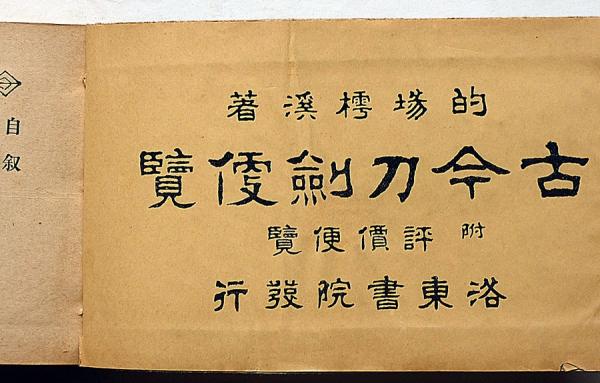 的場樗溪著
古今刀劍便覽
附 評價便覽
洛東書院發行
自叙